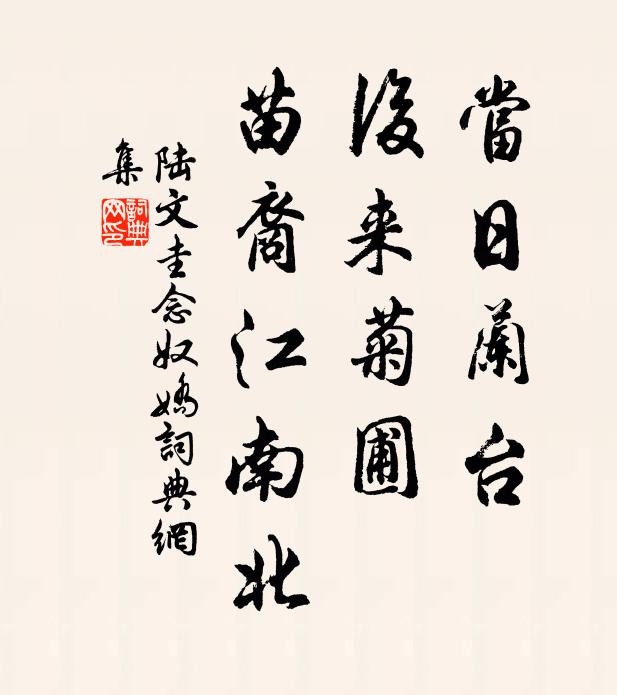 當日蘭台
後来菊圃
苗裔江南北
陆文圭念奴嬌詞典網
集
詞典網印